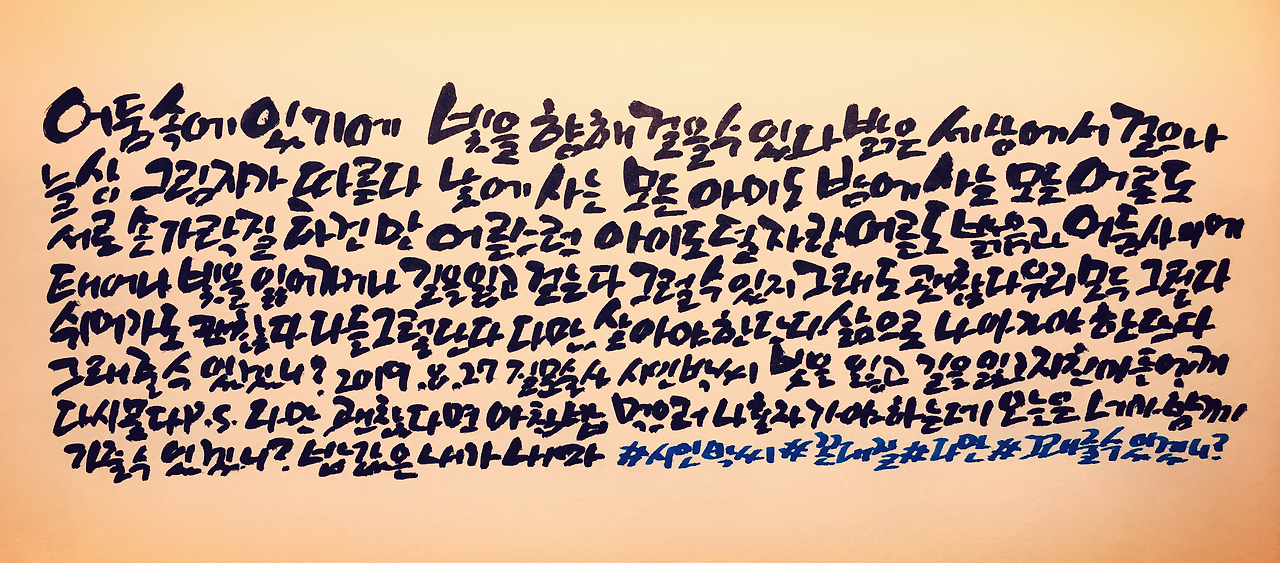 어둠속에 있기에 빛을 향해 걸을수 있다 밝은 세상에서 걸으나
늘상 그림자가 따른다 낮에 사는 모든 아이도 밤에 사는 모든 어른도
서로 손가락질 하건만 어른스런 아이도 덜 자란 어른도 밝음과 어둠사이에
태어나 빛을 잃어가거나 길을잃고 걷는다 그럴수 있지 그래도 괜찮다 우리모두 그런다
쉬어가도 괜찮다 다들 그럴란다 다만 살아야 한단다 삶으로 나아가야 한단다
그래줄수 있겠니? 2019.8.27 길모수식 시인박씨 빛을 잃고 길을잃고 지친 에게
다시묻다 P.S. 라면 괜찮다면 아침밥 먹으러 나혼자 가야하는데 오늘은 너랑 함께
가줄수 있겠니? 밥값은 내가 내마 #시인박씨 # #라면 #그래줄수있겠니?